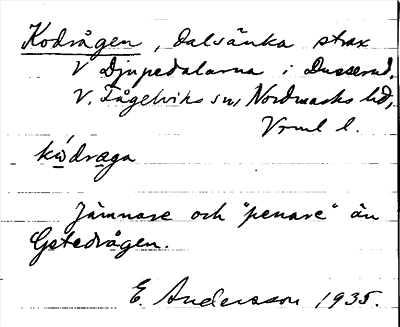 Kodrågen, dalsänka strax
V Djupedalarna i Dusserud,
V. Fågelviks sn, Nordmarks hd,
Vrml l.
kódraga
Jämnare och "penare" än
Getedrågen.
E. Andersson 1935.